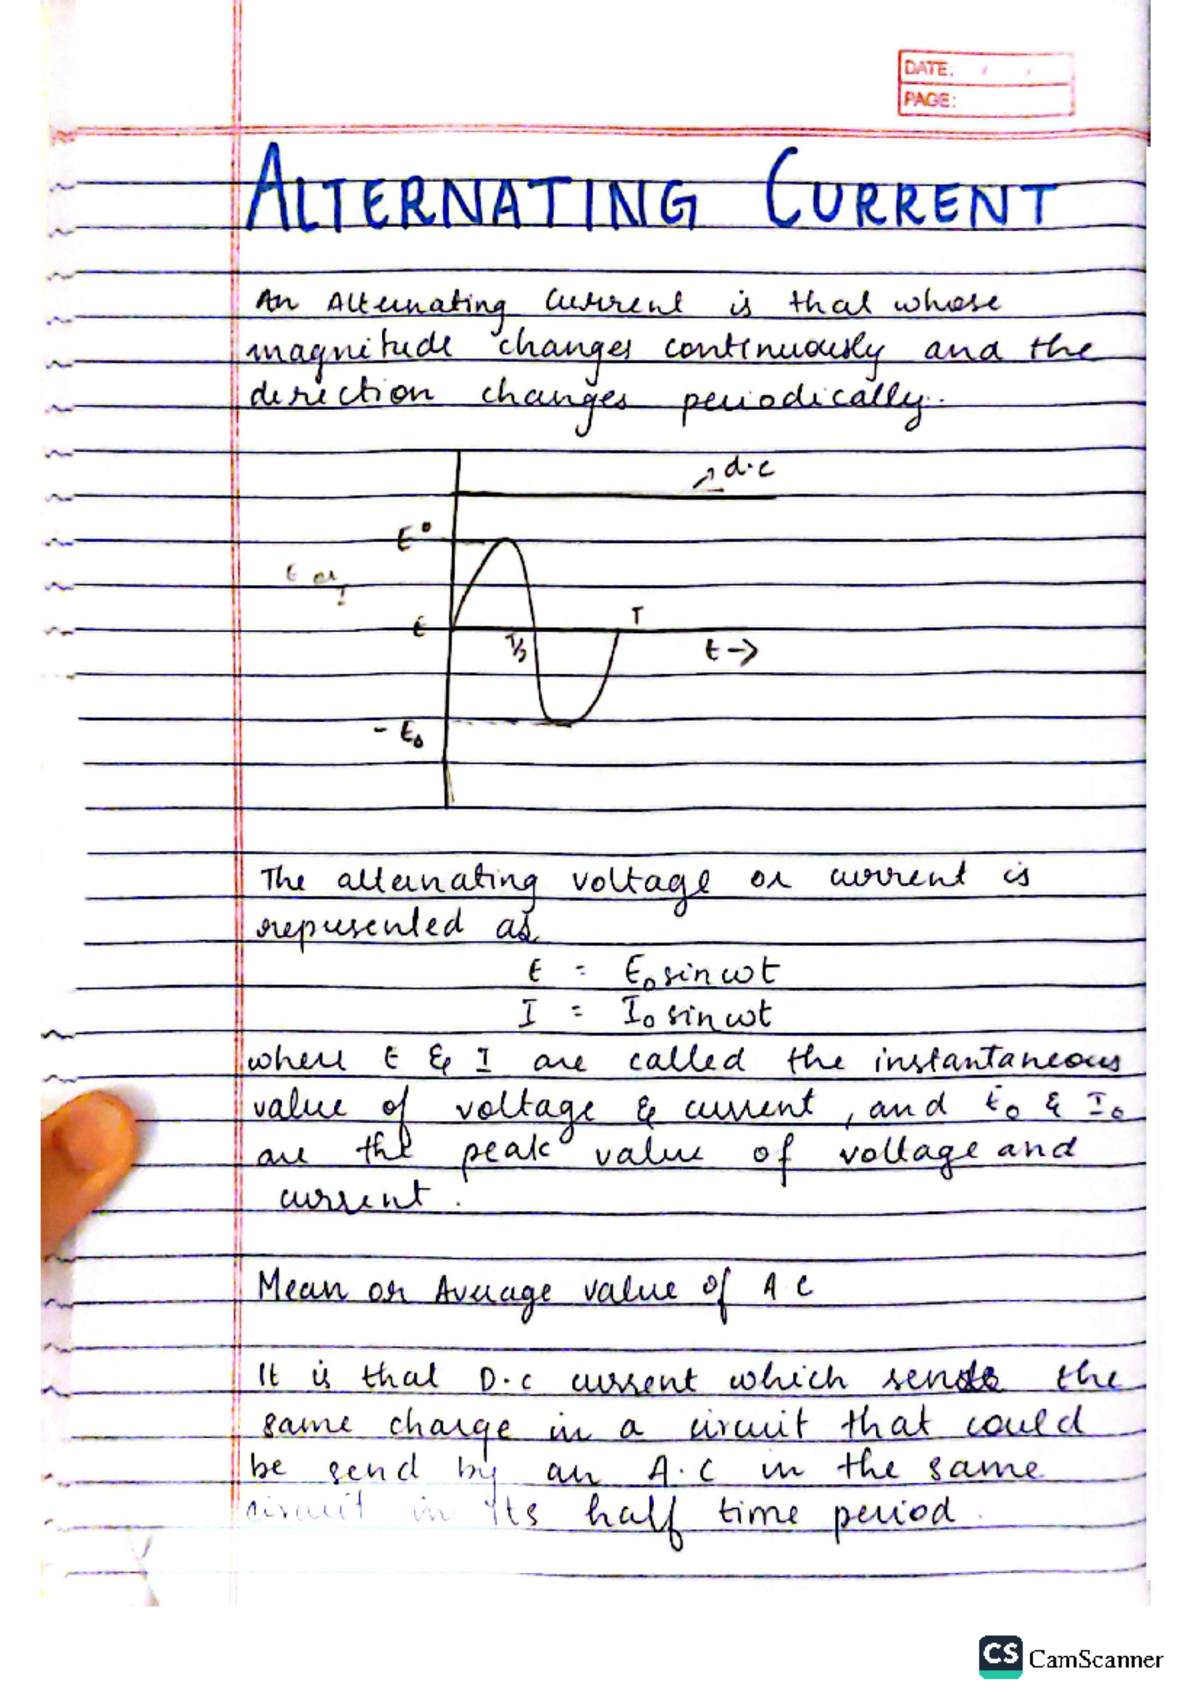 DATE: / /
PAGE:
ALTERNATING CURRENT
An Alternating Current is that whose
magnitude changes continuously and the
direction changes periodically.
d.c
E°
E or
I
T
E
T/2
t →
- E₀
The alternating voltage or current is
represented as
E = E₀ sin ωt
I = I₀ sin ωt
where E & I are called the instantaneous
value of voltage & current, and E₀ & I₀
are the peak value of voltage and
current.
Mean or Average value of A C
It is that D.C current which sends the
same charge in a circuit that could
be send by an A.C in the same
circuit in its half time period.
CS CamScanner